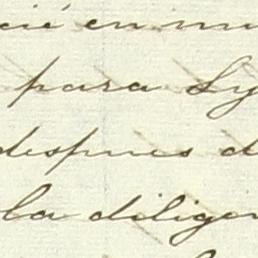 en
para Ly
despues d
la diligen